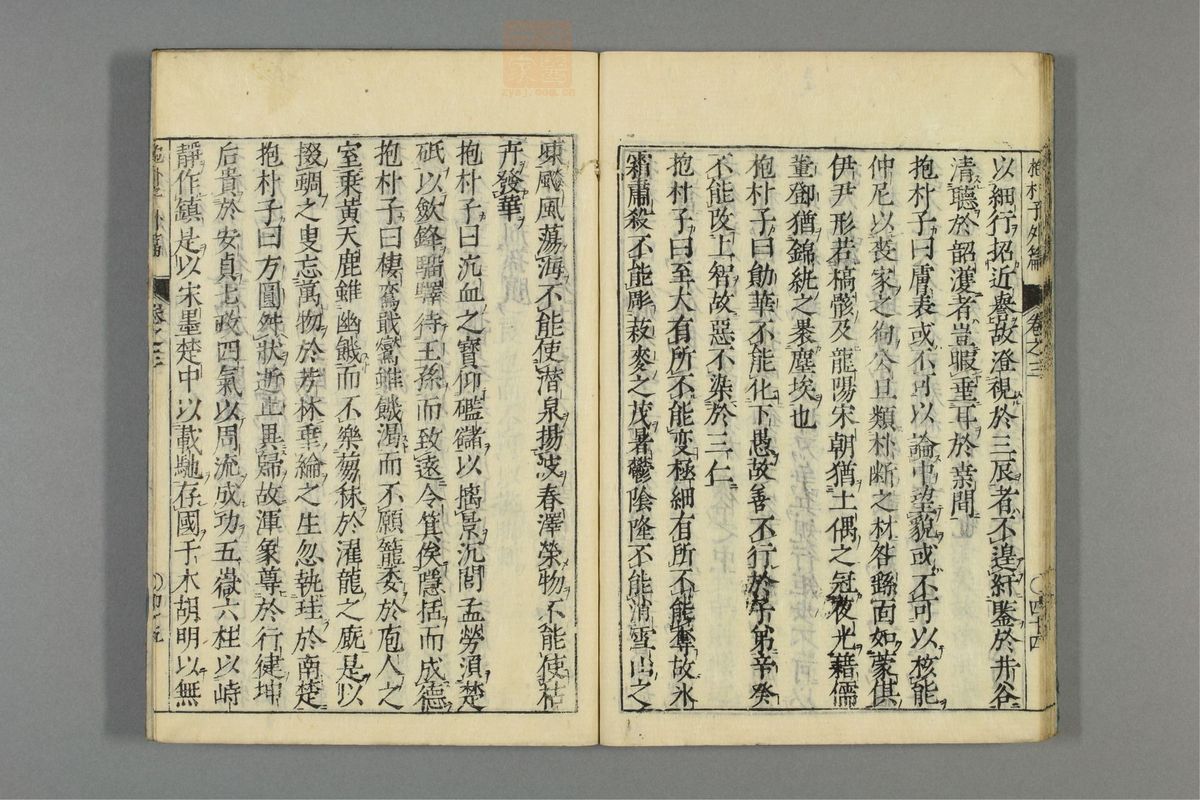 抱朴子外篇
卷之三
〇四十四
以細行招近譽故澄視於三辰者不遑紆鑒於井谷
清聽於韶濩者豈暇垂耳於桑間
抱朴子曰膚表或不可以論中望貌或不可以核能
仲尼以喪家之狗公旦類朴斵之材咎繇面如蒙倛
伊尹形若槁骸及龍陽宋朝猶土偶之冠夜光藉儒
董鄧猶錦紈之褁塵埃也
抱朴子曰勛華不能化下愚故善不行於子弟辛癸
不能改上智故惡不染於三仁
抱朴子曰至大有所不能变極細有所不能奪故氷
霜肅殺不能彫菽麥之茂暑鬱陰隆不能消雪山之
凍飈風蕩海不能使潛泉揚波春澤榮物不能使枯
卉發華
抱朴子曰沉血之寶仰礛䃴以摛景沉閭孟勞湏楚
砥以斂鋒驑驛待王孫而致遠令箕俟隱括而成德
抱朴子曰棲鸞戢鷟雖饑渴而不願籠委於庖人之
室乗黄天鹿雖幽饑而不樂芻秣於濯龍之廐是以
掇蜩之叟忘萬物於芳林垂綸之生忽執珪於南楚
抱朴子曰方圓舛狀逝止異歸故渾象尊於行健坤
后貴於安貞七政四氣以周流成功五嶽六柱以峙
靜作鎮是以宋墨楚申以載馳存國干木胡明以無
卷之三